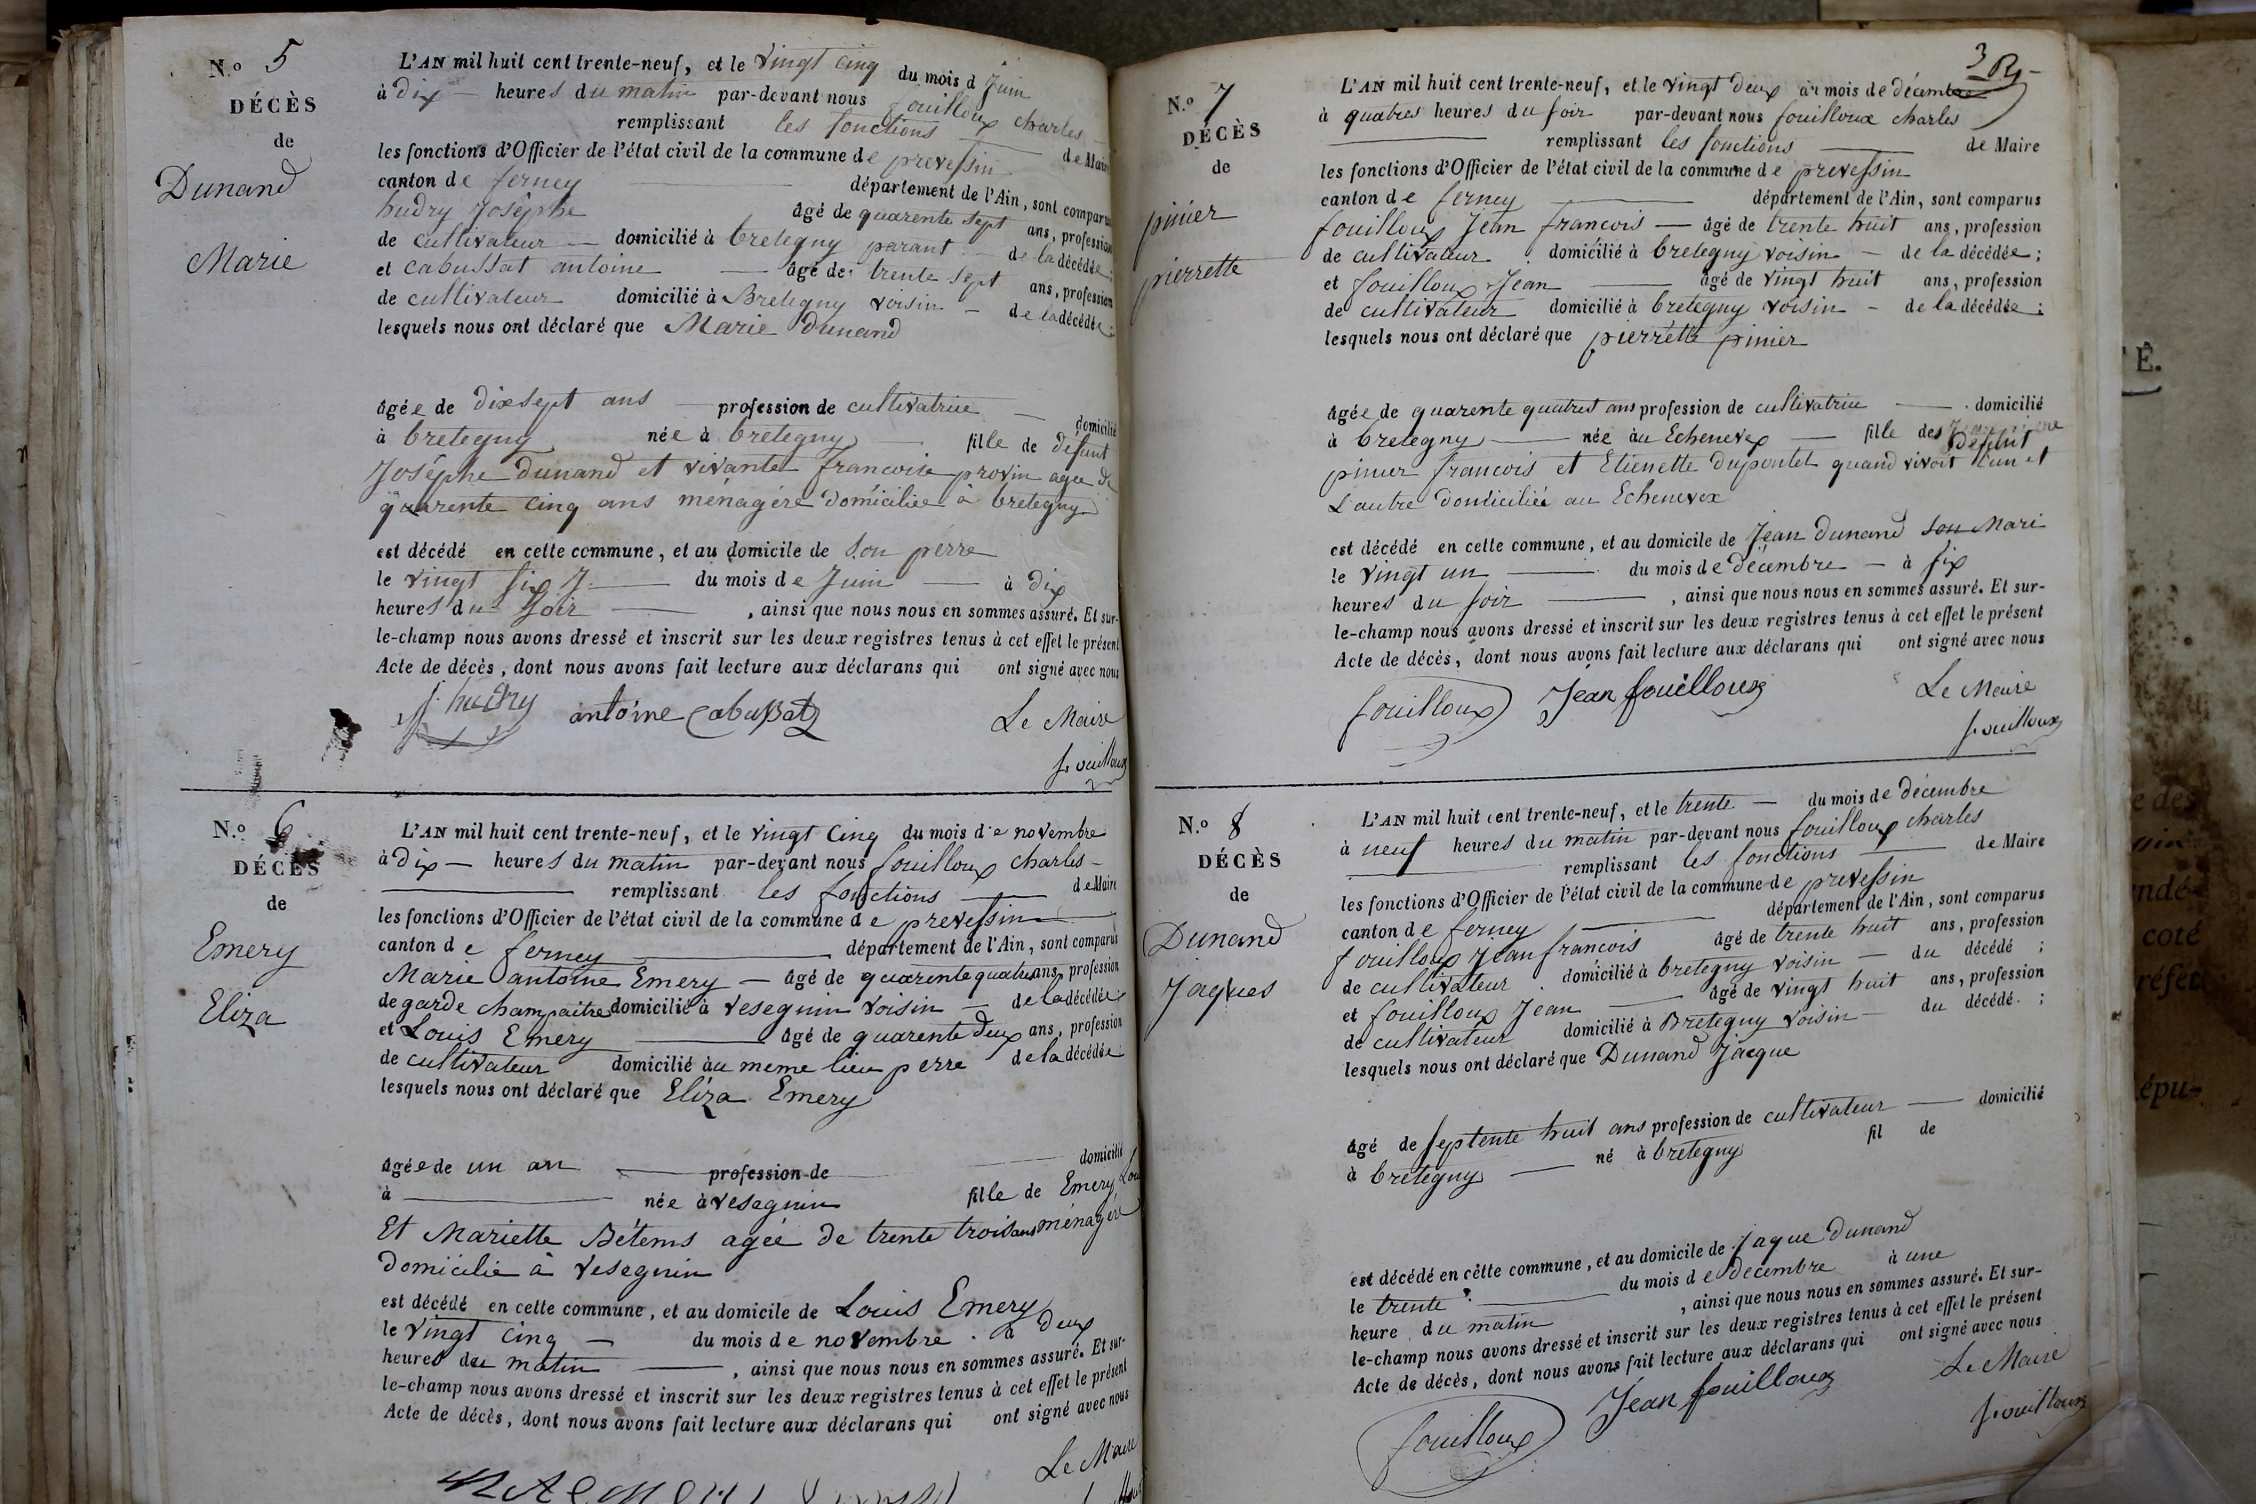 N.o 5
DÉCÈS
de
Dunand
Marie
L'AN mil huit cent trente-neuf, et le vingt cinq du mois d Juin
à dix heures du matin par-devant nous fouilloux charles
remplissant les fonctions de Maire
les fonctions d'Officier de l'état civil de la commune de prevessin
canton de ferney département de l'Ain, sont comparus
hudry Josèphe âgé de quarente sept ans, profession
de cultivateur domicilié à bretegny parant de la décédée;
et cabussat antoine âgé de trente sept ans, profession
de cultivateur domicilié à Bretegny voisin de la décédée;
lesquels nous ont déclaré que Marie Dunand
âgée de dixsept ans profession de cultivatrice domicilié
à bretegny née à bretegny fille de défunt
Josèphe Dunand et vivante francoise provin agee de
quarente cinq ans ménagére domiciliee à bretegny
est décédé en cette commune, et au domicile de son pérre
le vingt six du mois de Juin à dix
heures du soir, ainsi que nous nous en sommes assuré. Et sur-
le-champ nous avons dressé et inscrit sur les deux registres tenus à cet effet le présent
Acte de décès, dont nous avons fait lecture aux déclarans qui ont signé avec nous
J. hudry antoine Cabussat Le Maire
fouilloux
N.o 6
DÉCÈS
de
Emery
Eliza
L'AN mil huit cent trente-neuf, et le vingt cinq du mois de novembre
à dix heures du matin par-devant nous fouilloux charles
remplissant les fonctions de Maire
les fonctions d'Officier de l'état civil de la commune de prevessin
canton de ferney département de l'Ain, sont comparus
Marie antoine Emery âgé de quarente quatre ans, profession
de garde champaitre domicilié à vesegnin voisin de la décédée
et Louis Emery âgé de quarente deux ans, profession
de cultivateur domicilié au meme lieu perre de la décédée
lesquels nous ont déclaré que Eliza Emery
âgée de un an profession de domicilié
à née à vesegnin fille de Emery
Et Mariette Bétems agée de trente trois ans ménagère
domicilie à vesegnin
est décédé en cette commune, et au domicile de Louis Emery
le vingt cinq du mois de novembre à deux
heures du matin, ainsi que nous nous en sommes assuré. Et sur-
le-champ nous avons dressé et inscrit sur les deux registres tenus à cet effet le présent
Acte de décès, dont nous avons fait lecture aux déclarans qui ont signé avec nous
Le Maire
3
N.o 7
DÉCÈS
de
pinier
pierrette
L'AN mil huit cent trente-neuf, et le vingt deux du mois de décembre
à quatres heures du soir par-devant nous fouilloux charles
remplissant les fonctions de Maire
les fonctions d'Officier de l'état civil de la commune de prevessin
canton de ferney département de l'Ain, sont comparus
fouilloux Jean francois âgé de trente huit ans, profession
de cultivateur domicilié à bretegny voisin de la décédée;
et fouilloux Jean âgé de vingt huit ans, profession
de cultivateur domicilié à bretegny voisin de la décédée;
lesquels nous ont déclaré que pierrette pinier
âgée de quarente quatres ans profession de cultivatrice domicilié
à bretegny née au Echenevex fille des défunt
pinier francois et Etienette dupontet quand vivoit l'un et
L'autre domiciliée au Echenevex
est décédé en cette commune, et au domicile de Jean Dunand son Mari
le vingt un du mois de décembre à six
heures du soir, ainsi que nous nous en sommes assuré. Et sur-
le-champ nous avons dressé et inscrit sur les deux registres tenus à cet effet le présent
Acte de décès, dont nous avons fait lecture aux déclarans qui ont signé avec nous
fouilloux Jean fouilloux Le Maire
fouilloux
N.o 8
DÉCÈS
de
Dunand
Jaques
L'AN mil huit cent trente-neuf, et le trente du mois de décembre
à neuf heures du matin par-devant nous fouilloux charles
remplissant les fonctions de Maire
les fonctions d'Officier de l'état civil de la commune de prevessin
canton de ferney département de l'Ain, sont comparus
fouilloux Jean francois âgé de trente huit ans, profession
de cultivateur domicilié à bretegny voisin du décédé;
et fouilloux Jean âgé de vingt huit ans, profession
de cultivateur domicilié à Bretegny voisin du décédé;
lesquels nous ont déclaré que Dunand Jacque
âgé de septente huit ans profession de cultivateur domicilié
à bretegny né à bretegny fil de
est décédé en cette commune, et au domicile de Jaque Dunand
le trente du mois de decembre à une
heure du matin, ainsi que nous nous en sommes assuré. Et sur-
le-champ nous avons dressé et inscrit sur les deux registres tenus à cet effet le présent
Acte de décès, dont nous avons fait lecture aux déclarans qui ont signé avec nous
fouilloux Jean fouilloux Le Maire
fouilloux